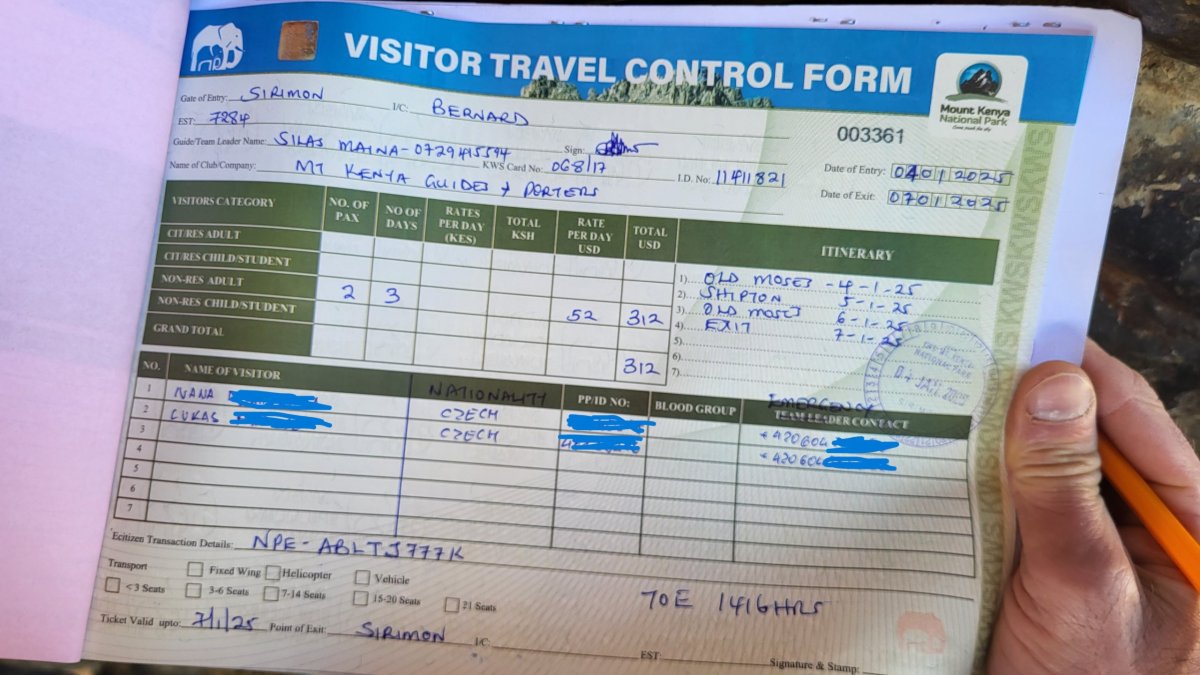 VISITOR TRAVEL CONTROL FORM
Mount Kenya
National Park
Gate of Entry: SIRIMON I/C: BERNARD
003361
EST: 7284
Guide/Team Leader Name: SILAS MAINA - 0729415594 Sign:
Date of Entry: 04012025
Name of Club/Company: MT KENYA GUIDES & PORTERS KWS Card No: 068/17 I.D. No: 11411821
Date of Exit: 07012025
VISITORS CATEGORY NO. OF PAX NO OF DAYS RATES PER DAY (KES) TOTAL KSH RATE PER DAY USD TOTAL USD ITINERARY
CIT/RES ADULT
CIT/RES CHILD/STUDENT
NON-RES ADULT 2 3 52 312
NON-RES CHILD/STUDENT
GRAND TOTAL 312
1) OLD MOSES - 4-1-25
2) SHIPTON 5-1-25
3) OLD MOSES 6-1-25
4) EXIT 7-1-25
5)
6)
7)
NO. NAME OF VISITOR NATIONALITY PP/ID NO: BLOOD GROUP EMERGENCY TEAM LEADER CONTACT
1 NANA CZECH +420604
2 LUKAS CZECH +420604
3
4
5
6
7
Ecitizen Transaction Details: NPE-ABLTJ777K
Transport Fixed Wing Helicopter Vehicle
<3 Seats 3-6 Seats 7-14 Seats 15-20 Seats 21 Seats
TOE 1416HRS
Ticket Valid upto: 7/1/25 Point of Exit: SIRIMON I/C: EST: Signature & Stamp: